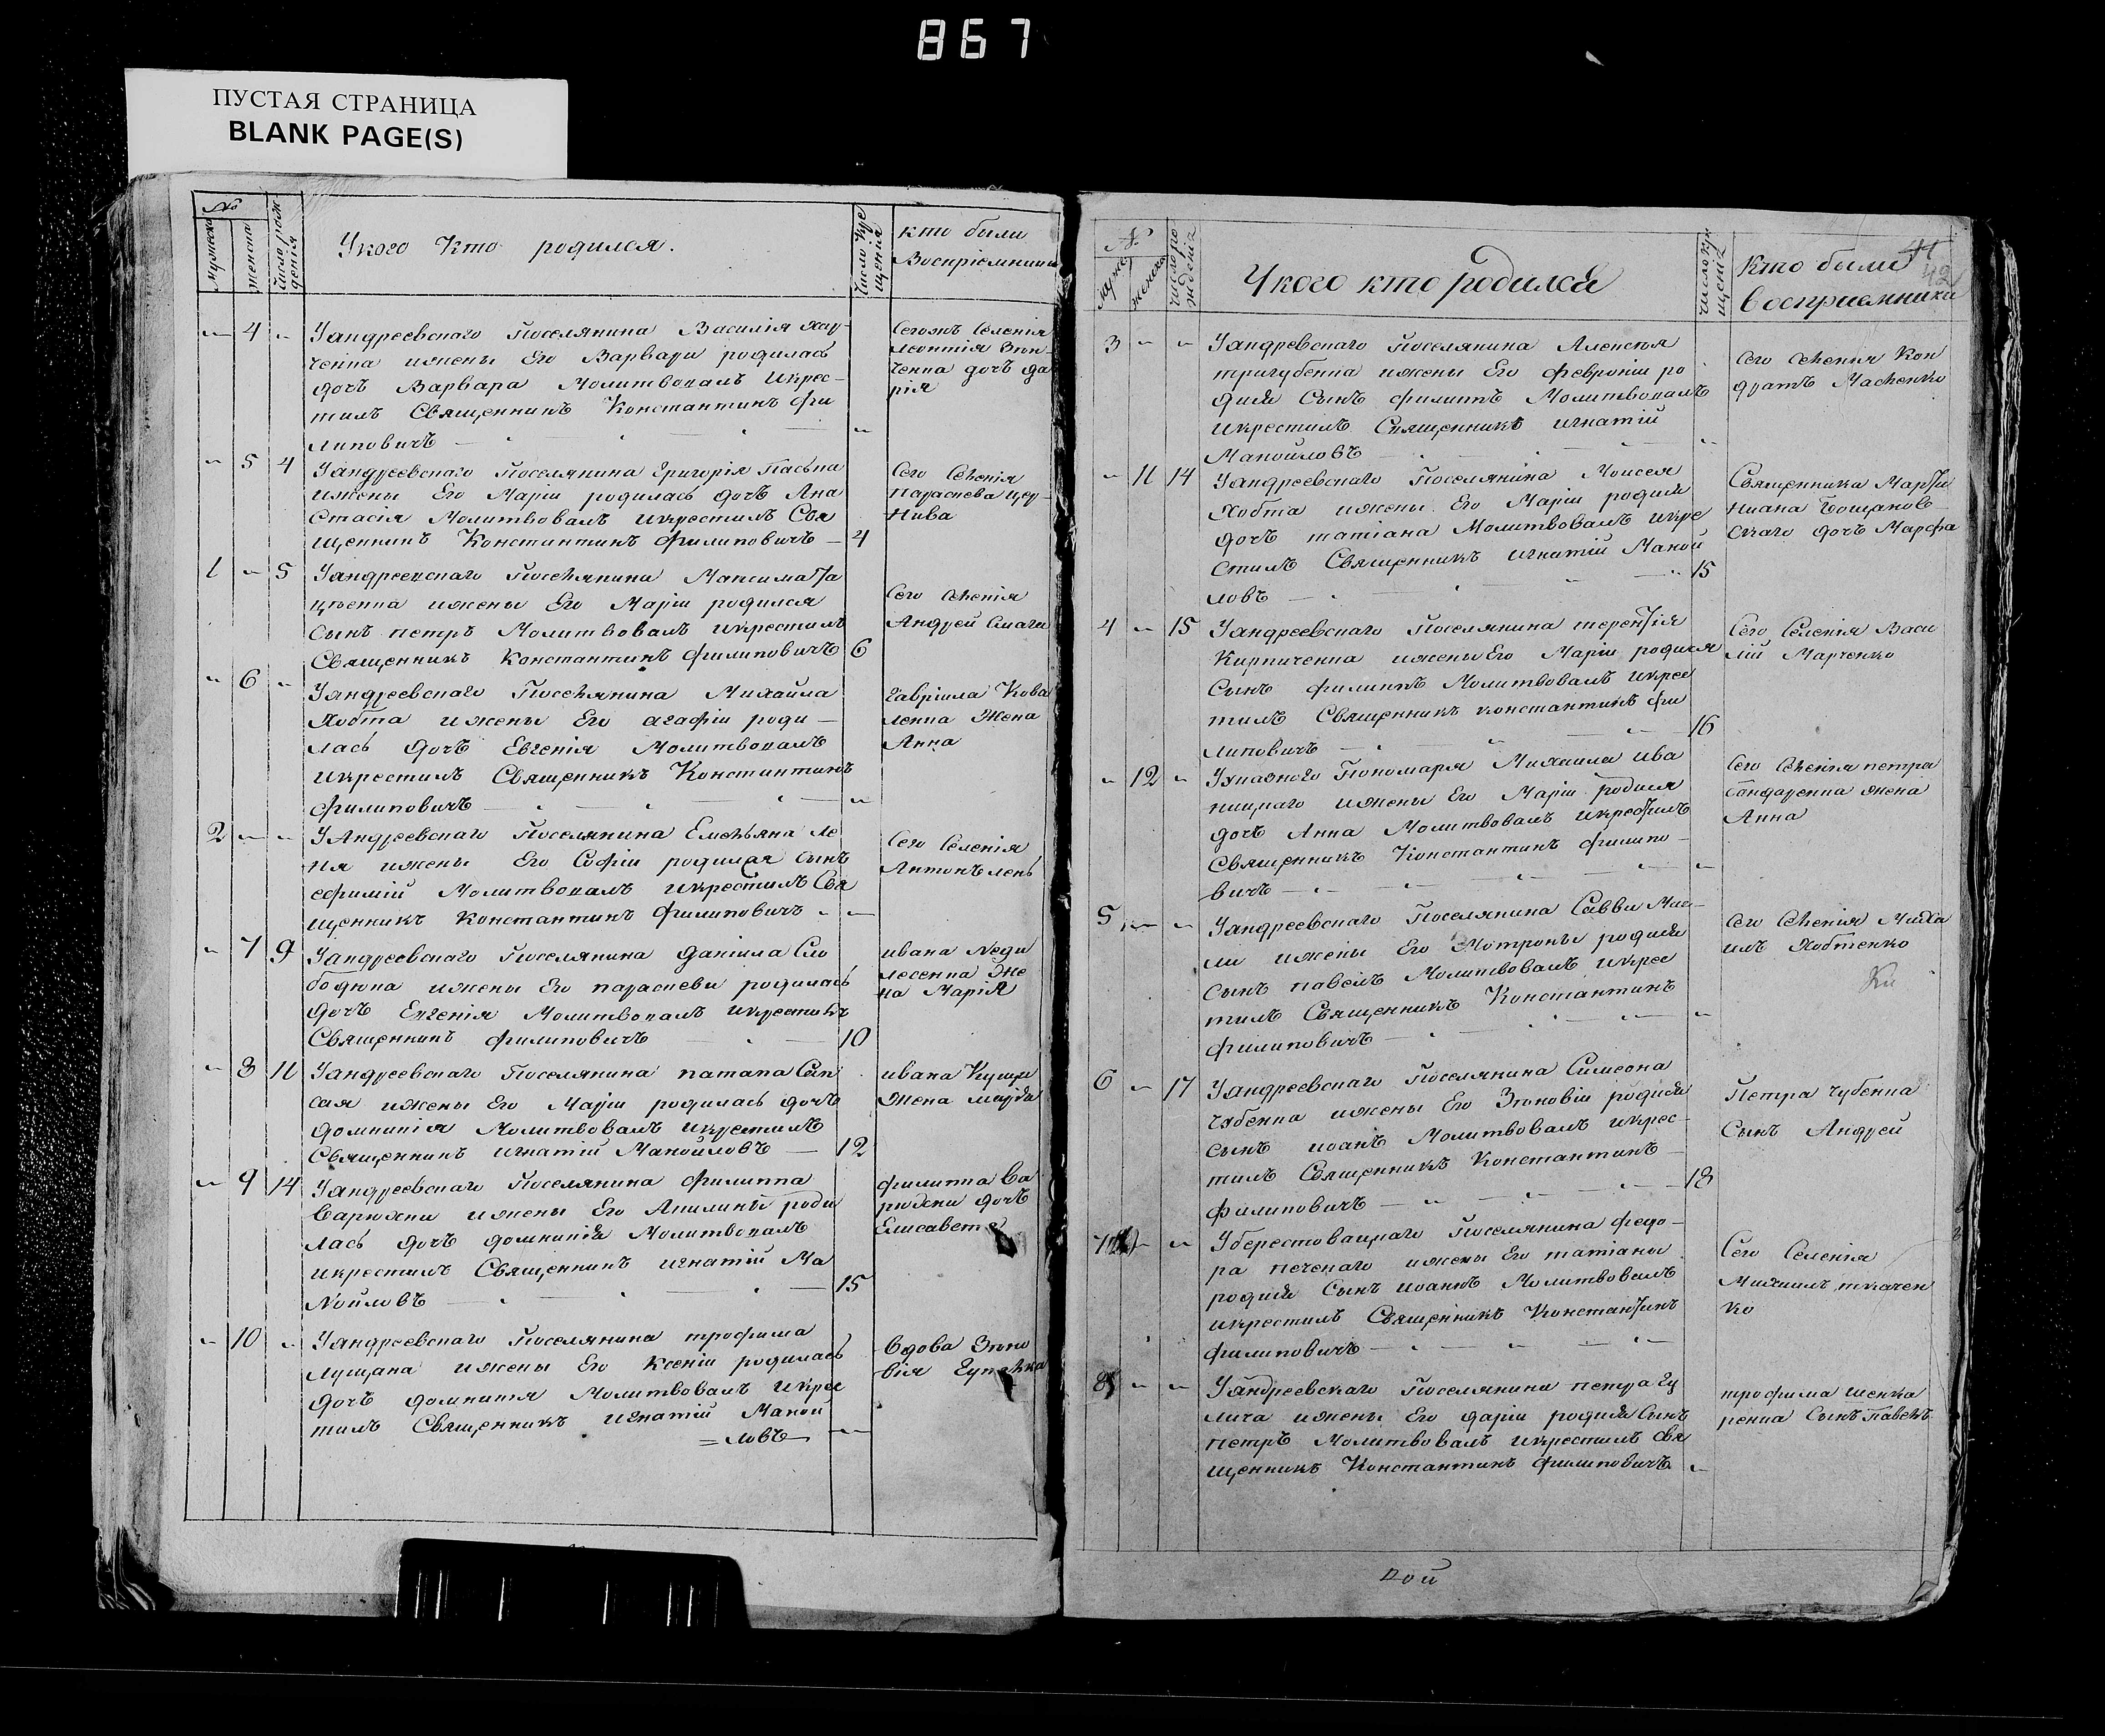 867
ПУСТАЯ СТРАНИЦА
BLANK PAGE(S)
№
мужеска
женска
число рож-
денія
У кого кто родился.
число кре
щенія
кто были
восприемники
4
У андреевскаго поселянина Василія Хар-
ченка и жены его Варвары родилась
дочь Варвара молитвовалъ и крес-
тилъ Священникъ Константинъ Фи
липовичъ
сегожъ селенія
Леонтія Зѣн-
ченка дочь Да
рія
5 4
У андреевскаго поселянина Григорія
и жены его Маріи родилась дочь Ана
стасія молитвовалъ и крестилъ Свя
щенникъ Константинъ Филиповичъ
4
сего селенія
параскева
1 5
У андреевскаго поселянина Максима
и жены его Маріи родился
сынъ петръ молитвовалъ и крестилъ
Священникъ Константинъ Филиповичъ
6
сего селенія
Андрей
6
У андреевскаго поселянина Михайла
Хобта и жены его агафіи роди-
лась дочь Евгенія молитвовалъ
и крестилъ Священникъ Константинъ
Филиповичъ
Гавріила Кова
ленка жена
Анна
2
У Андреевскаго поселянина Емельяна Ле
ня и жены его Софіи родился сынъ
ефимій молитвовалъ и крестилъ Свя
щенникъ Константинъ Филиповичъ
сего селенія
Антонъ лень
7 9
У андреевскаго поселянина даніила Сло
бодюка и жены его параскеви родилась
дочь Евгенія молитвовалъ и крестилъ
Священникъ Филиповичъ
10
ивана
же
на Марія
8 11
У андреевскаго поселянина
и жены его Маріи родилась дочь
домникія молитвовалъ и крестилъ
Священникъ игнатій Манойловъ
12
ивана
жена марія
9 14
У андреевскаго поселянина филиппа
Варюхи и жены его Акилины роди
лась дочь домникія молитвовалъ
и крестилъ Священникъ игнатій Ма
нойловъ
15
филиппа Ва
рюхи дочь
Елисавета
10
У андреевскаго поселянина трофима
лущана и жены его Ксеніи родилась
дочь домникія молитвовалъ и крес
тилъ Священникъ игнатій Маной
=ловъ
вдова Зѣно
вія
№
муже
женска
число ро
жденія
У кого кто родился
число кре
щенія
кто были
восприемники
41
42
3
У андреевскаго поселянина Алексѣя
тригубенка и жены его февроніи ро
дился сынъ филипъ молитвовалъ
и крестилъ Священникъ игнатій
Манойловъ
сего селенія Кон
дратъ Масленко
11 14
У андреевскаго поселянина Моисея
Хобта и жены его Маріи родилась
дочь татіана молитвовалъ и кре
стилъ Священникъ игнатій Маной
ловъ
15
Священника Марти
ниана Бощанов-
скаго дочь Марфа
4 15
У андреевскаго поселянина терентія
Кирпиченка и жены его Маріи родился
сынъ филипъ молитвовалъ и крес
тилъ Священникъ константинъ фи
липовичъ
16
сего селенія Васи
лій Марченко
12
пономаря Михаила ива
ницкаго и жены его Маріи родилася
дочь Анна молитвовалъ и крестилъ
Священникъ Константинъ филипо-
вичъ
сего селенія петра
бандаренка жена
Анна
5
У андреевскаго поселянина Саввы
и жены его Мотроны родился
сынъ павелъ молитвовалъ и крес
тилъ Священникъ Константинъ
филиповичъ
сего селенія Миха
илъ Хобтенко
6 17
У андреевскаго поселянина Симеона
чубенка и жены его Зѣновіи родился
сынъ иоанъ молитвовалъ и крес-
тилъ Священникъ Константинъ
филиповичъ
18
петра чубенка
сынъ Андрей
7
У берестовацкаго поселянина федо-
ра печенаго и жены его татіаны
родился сынъ иоаннъ молитвовалъ
и крестилъ Священникъ Константинъ
филиповичъ
сего селенія
Михаилъ ткачен
ко
8
У андреевскаго поселянина петра Гу
лича и жены его даріи родился сынъ
петръ молитвовалъ и крестилъ свя
щенникъ Константинъ филиповичъ
трофима шенка
ренка сынъ павелъ